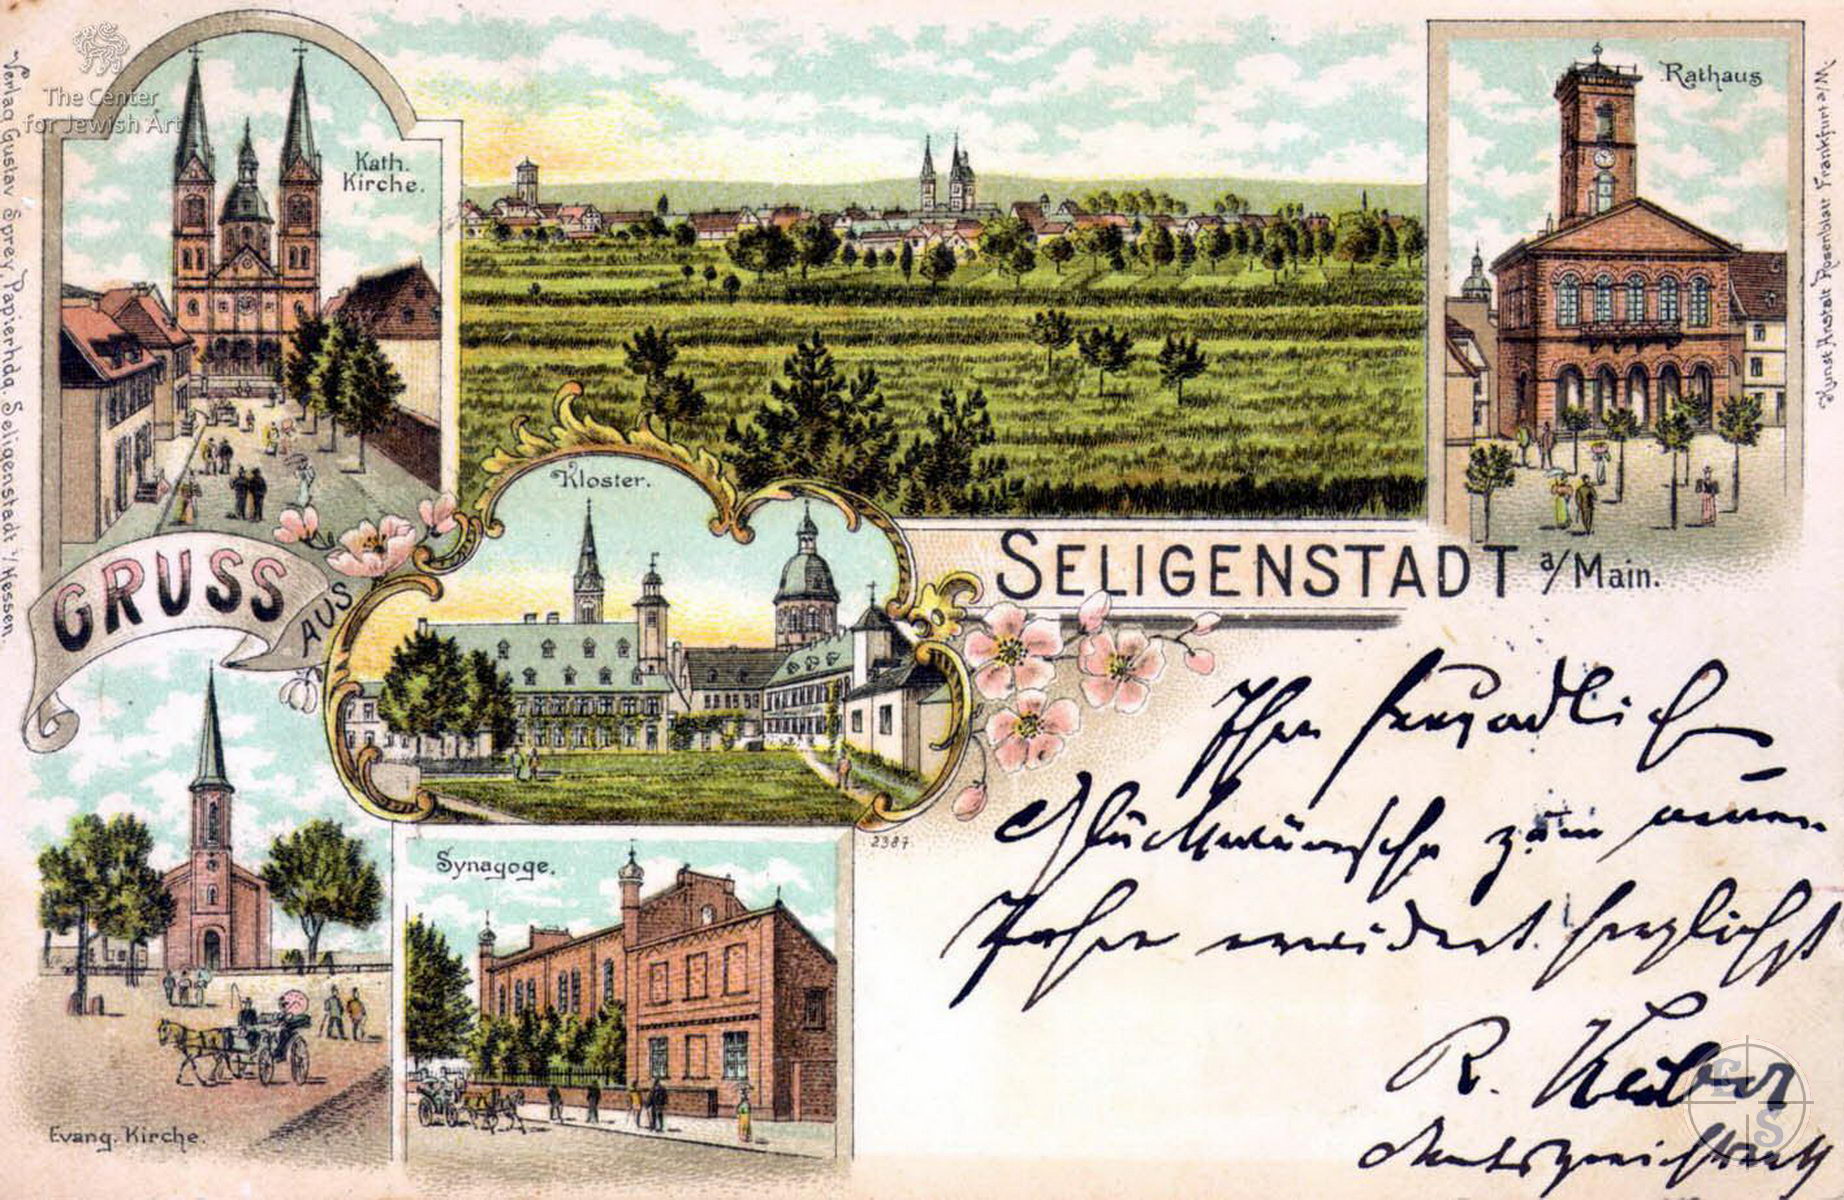 The Center
for Jewish Art
Verlag Gustav Sprey, Papierhdg. Seligenstadt i/Hessen.
Kath.
Kirche.
Rathaus
Kunst Anstalt Rosenblatt Frankfurt a/M.
Kloster.
GRUSS
AUS
SELIGENSTADT a/Main.
Evang. Kirche.
Synagoge.
2387
Ihre freundlich
Glückwünsche zum neuen
Jahre erwidert herzlichst
R.
Amtsgerichtsrath
E
S